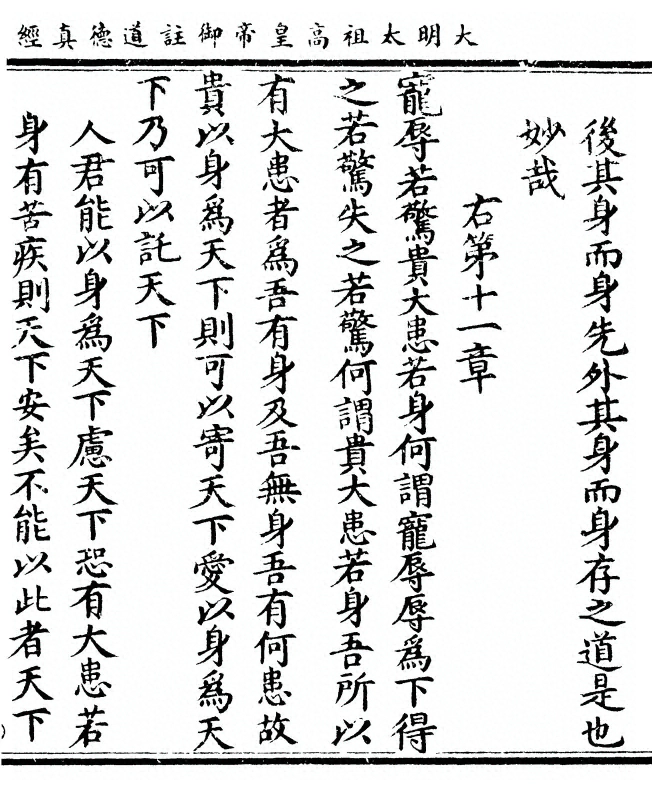 大明太祖高皇帝御註道德真經
後其身而身先外其身而身存之道是也
妙哉
右第十一章
寵辱若驚貴大患若身何謂寵辱辱為下得
之若驚失之若驚何謂貴大患若身吾所以
有大患者為吾有身及吾無身吾有何患故
貴以身為天下則可以寄天下愛以身為天
下乃可以託天下
人君能以身為天下慮天下恐有大患若
身有苦疾則天下安矣不能以此者天下